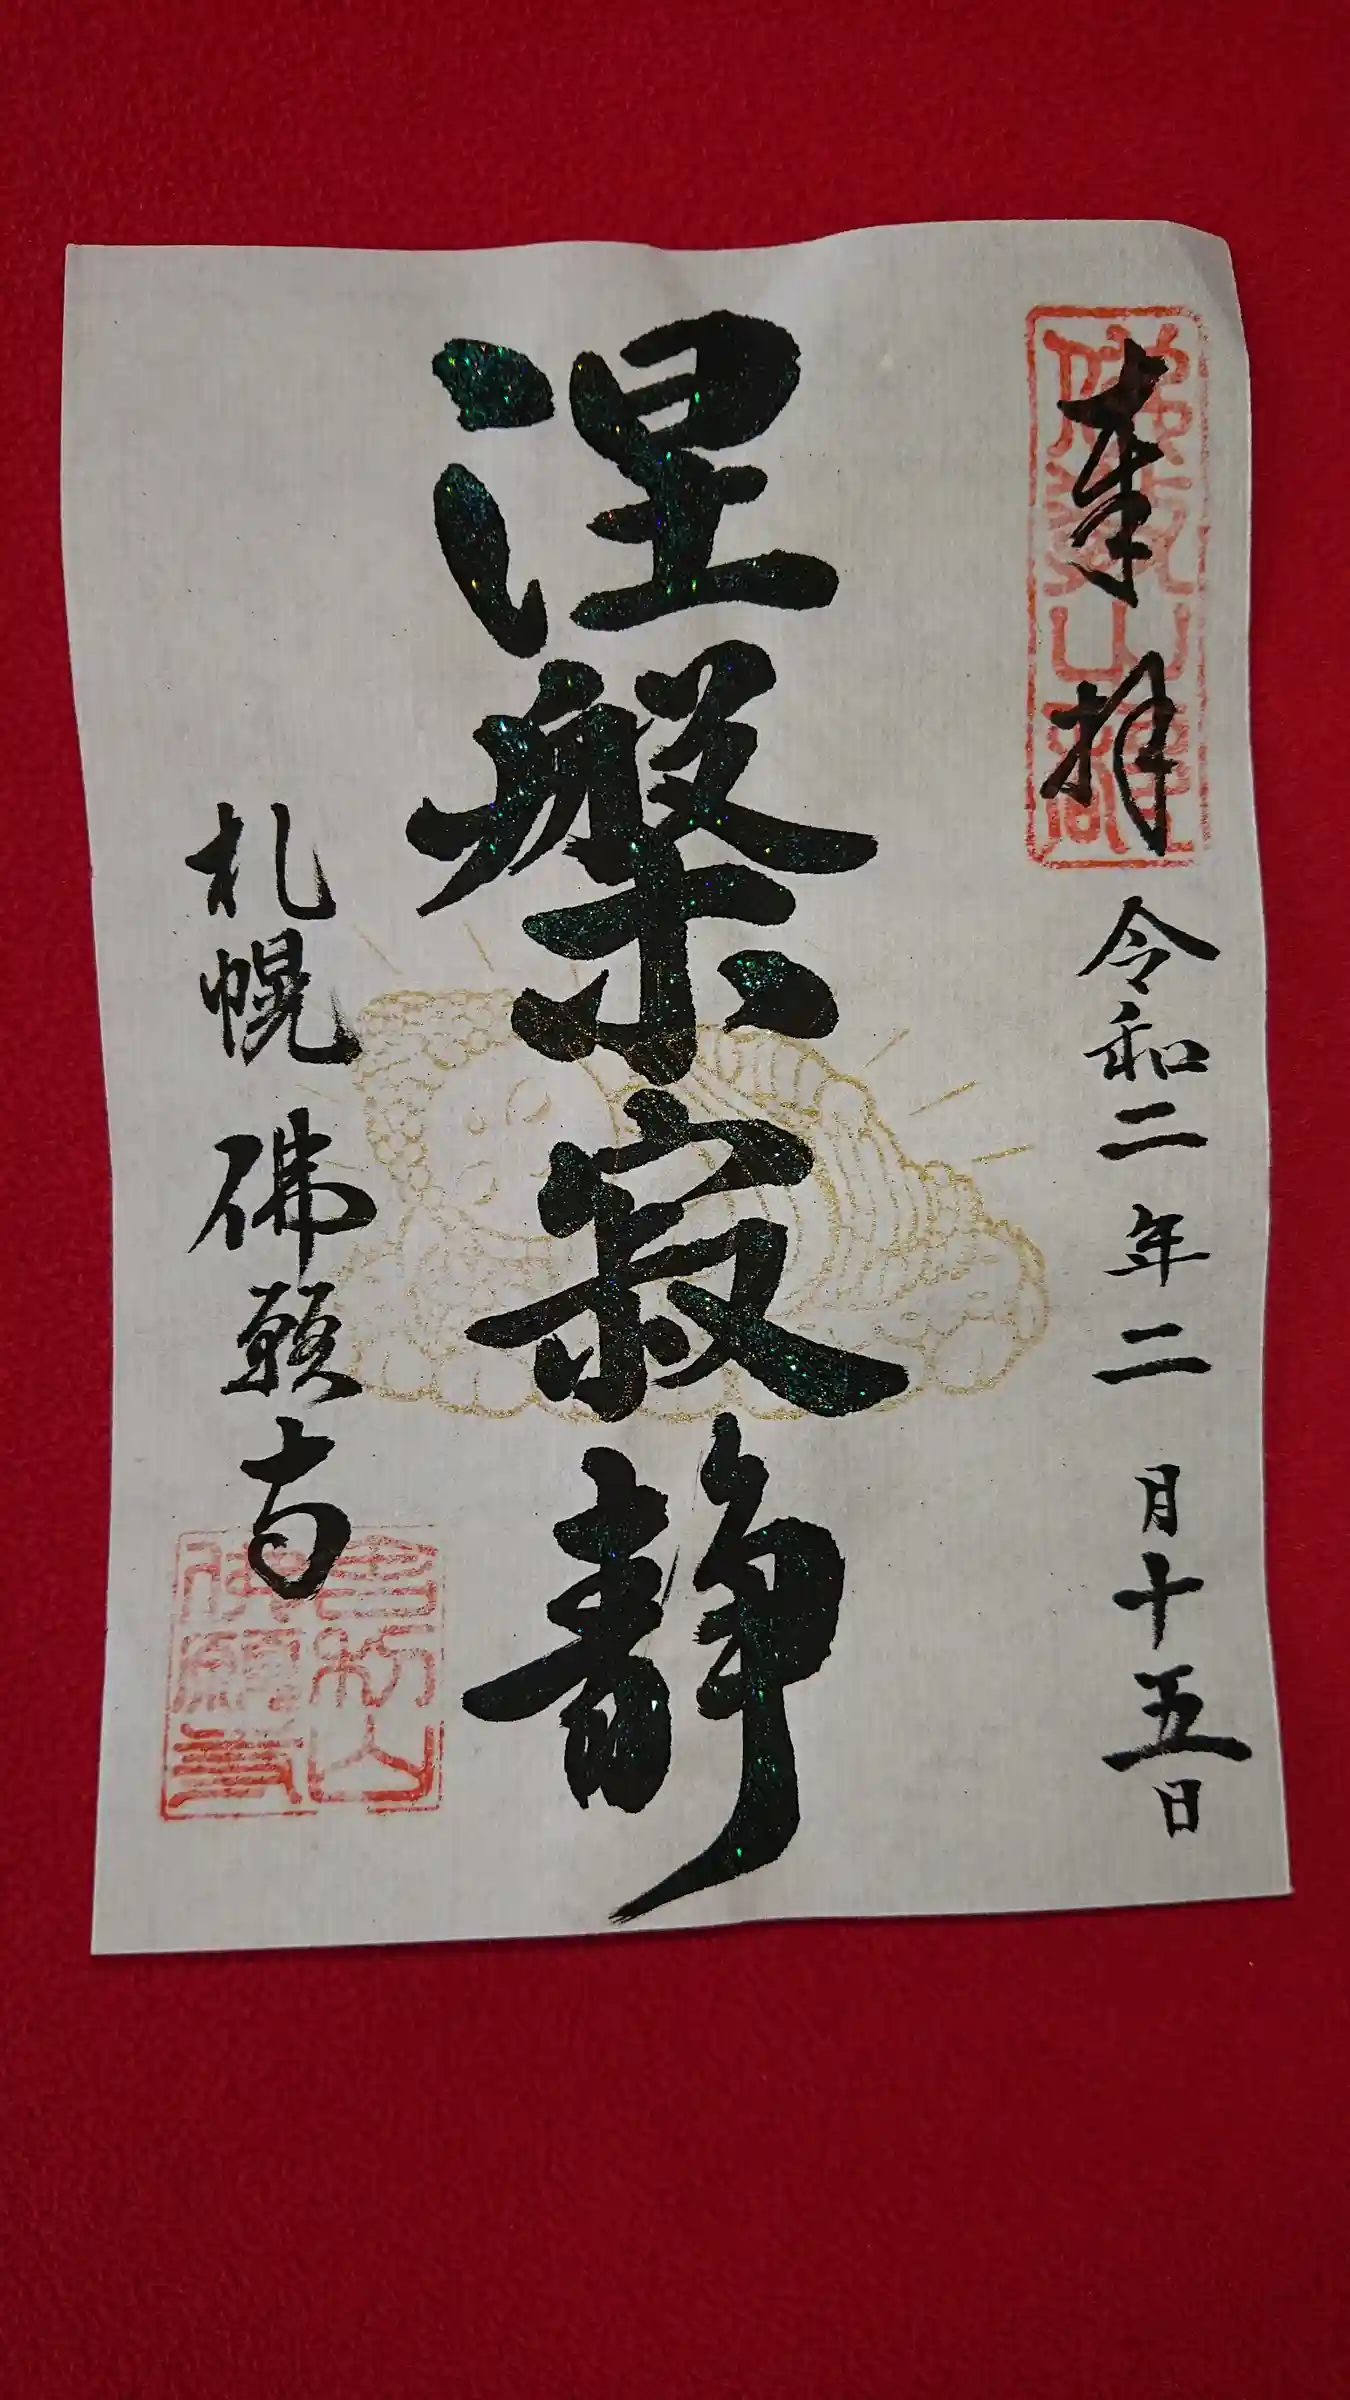 奉拝
令和二年二月十五日
涅槃寂静
札幌 佛願寺